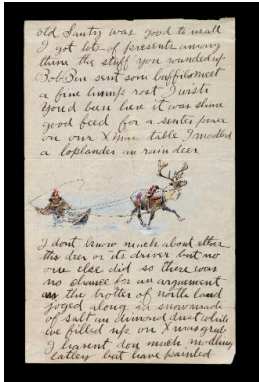 old Santy was good to us all
I got lots of presents among
them the stuff you rounded up
Bob Ben sent som buffilo meet
a fine hump rost I wish
you'd been here it was shure
good feed for a senter peace
on our Xmas table I modled
a loplander an rain deer
I dont know much about ether
this deer or its driver but no
one else did so there was
no chance for an argument
as the trotter of north land
joged along in snow made
of salt an dimond dust while
we filled up on Xmas grub
I havent don much modling
latley but have painted